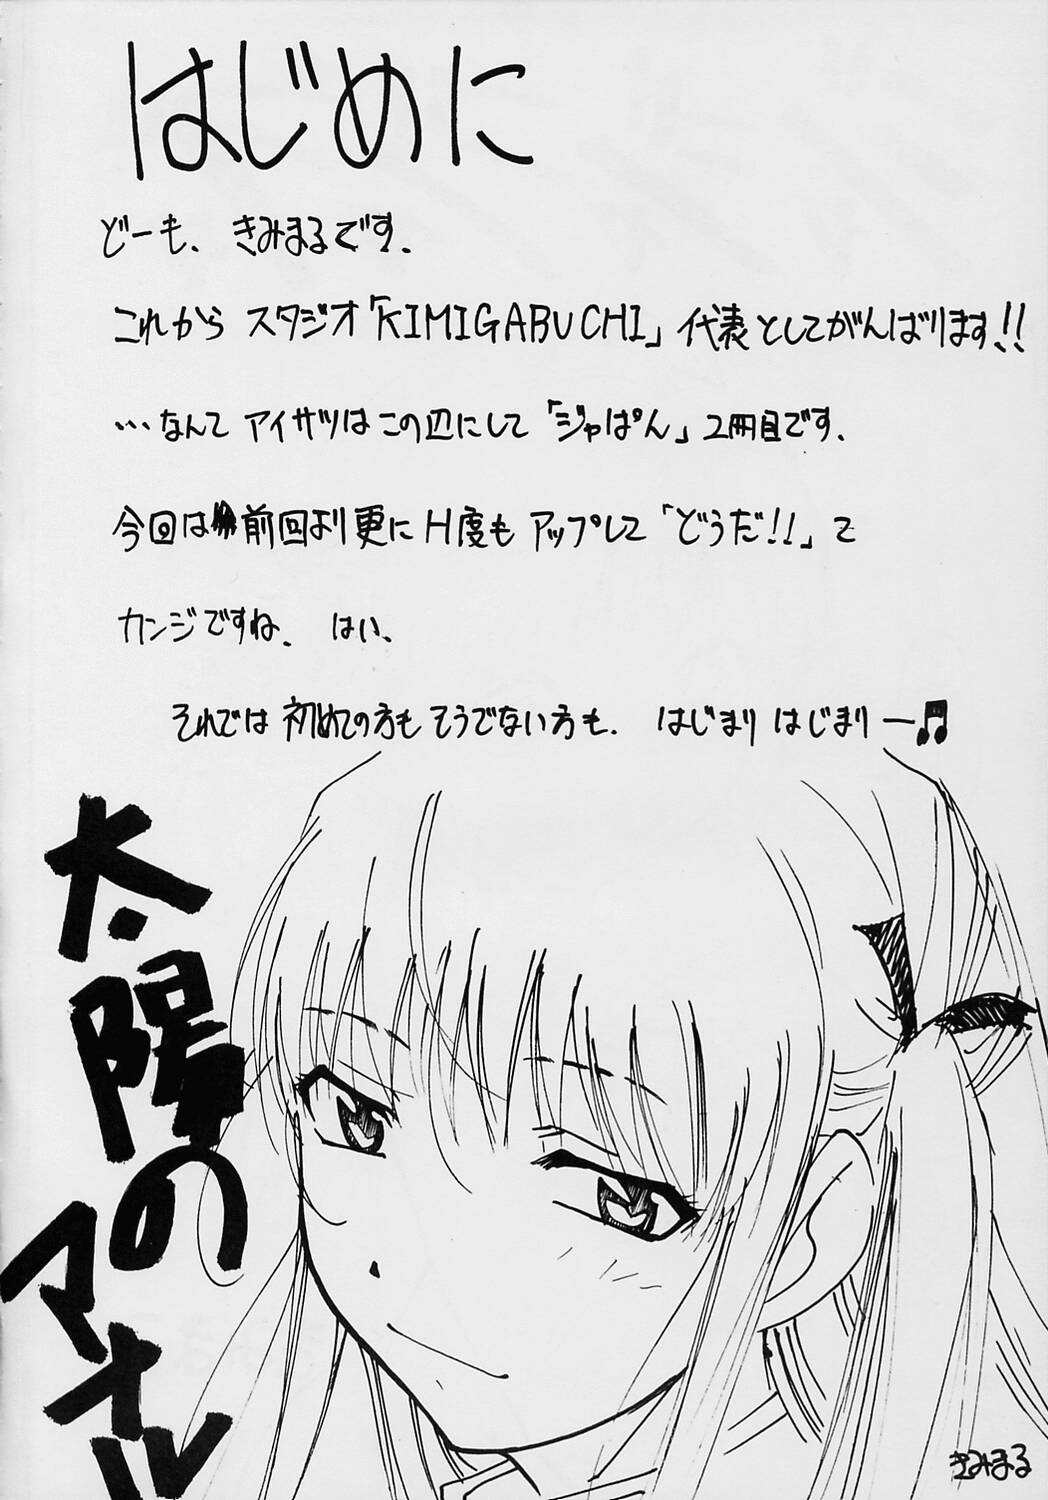 はじめに
どーも、きみまるです.
これから スタジオ「KIMIGABUCHI」代表としてがんばります!!
…なんて アイサツはこの辺にして「ジャぱん」2冊目です.
今回は前回より更にH度もアップして「どうだ!!」て
カンジですね. はい、
それでは 初めての方も そうでない方も. はじまり はじまりー♫
太陽の
マオル
きみまる